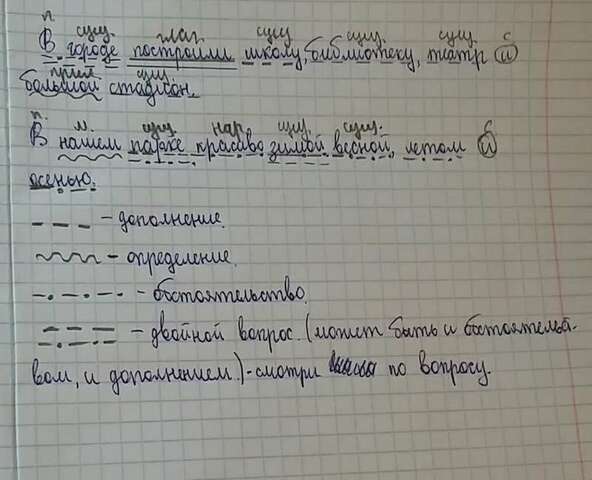 п. сущ. глаг. сущ. сущ. сущ. с
В городе построили школу, библиотеку, театр и
прил. сущ.
большой стадион.
п. м. сущ. нар. сущ. сущ. с
В нашем парке красиво зимой весной, летом и
осенью.
– дополнение.
– определение.
– обстоятельство.
– двойной вопрос. (может быть и обстоятельс-
вом, и дополнением.) – смотри по вопросу.